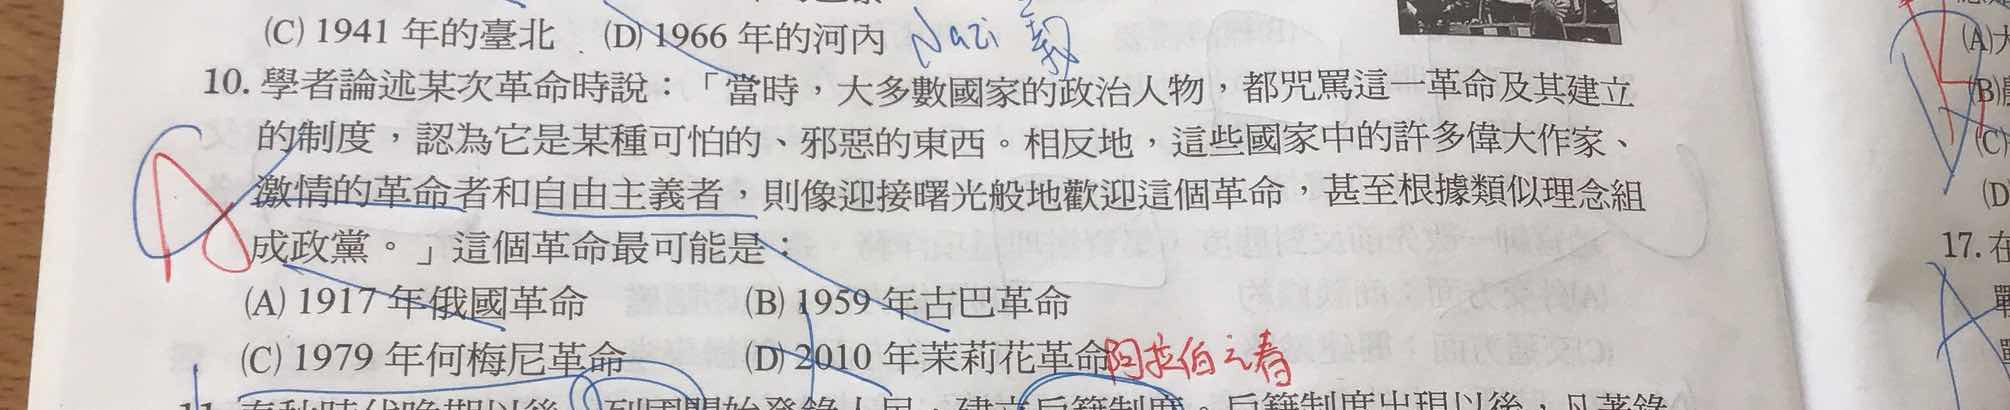 (C) 1941 年的臺北 (D) 1966 年的河內 Nazi
10. 學者論述某次革命時說：「當時，大多數國家的政治人物，都咒罵這一革命及其建立
的制度，認為它是某種可怕的、邪惡的東西。相反地，這些國家中的許多偉大作家、
激情的革命者和自由主義者，則像迎接曙光般地歡迎這個革命，甚至根據類似理念組
成政黨。」這個革命最可能是：
A
(A) 1917 年俄國革命 (B) 1959 年古巴革命
(C) 1979 年何梅尼革命 (D) 2010 年茉莉花革命 阿拉伯之春
11. 春秋時代晚期以後，列國開始登錄人民，建立戶籍制度。戶籍制度出現以後，凡著錄
(A)大
(B)
(C)
(D)
17. 在
戰
A